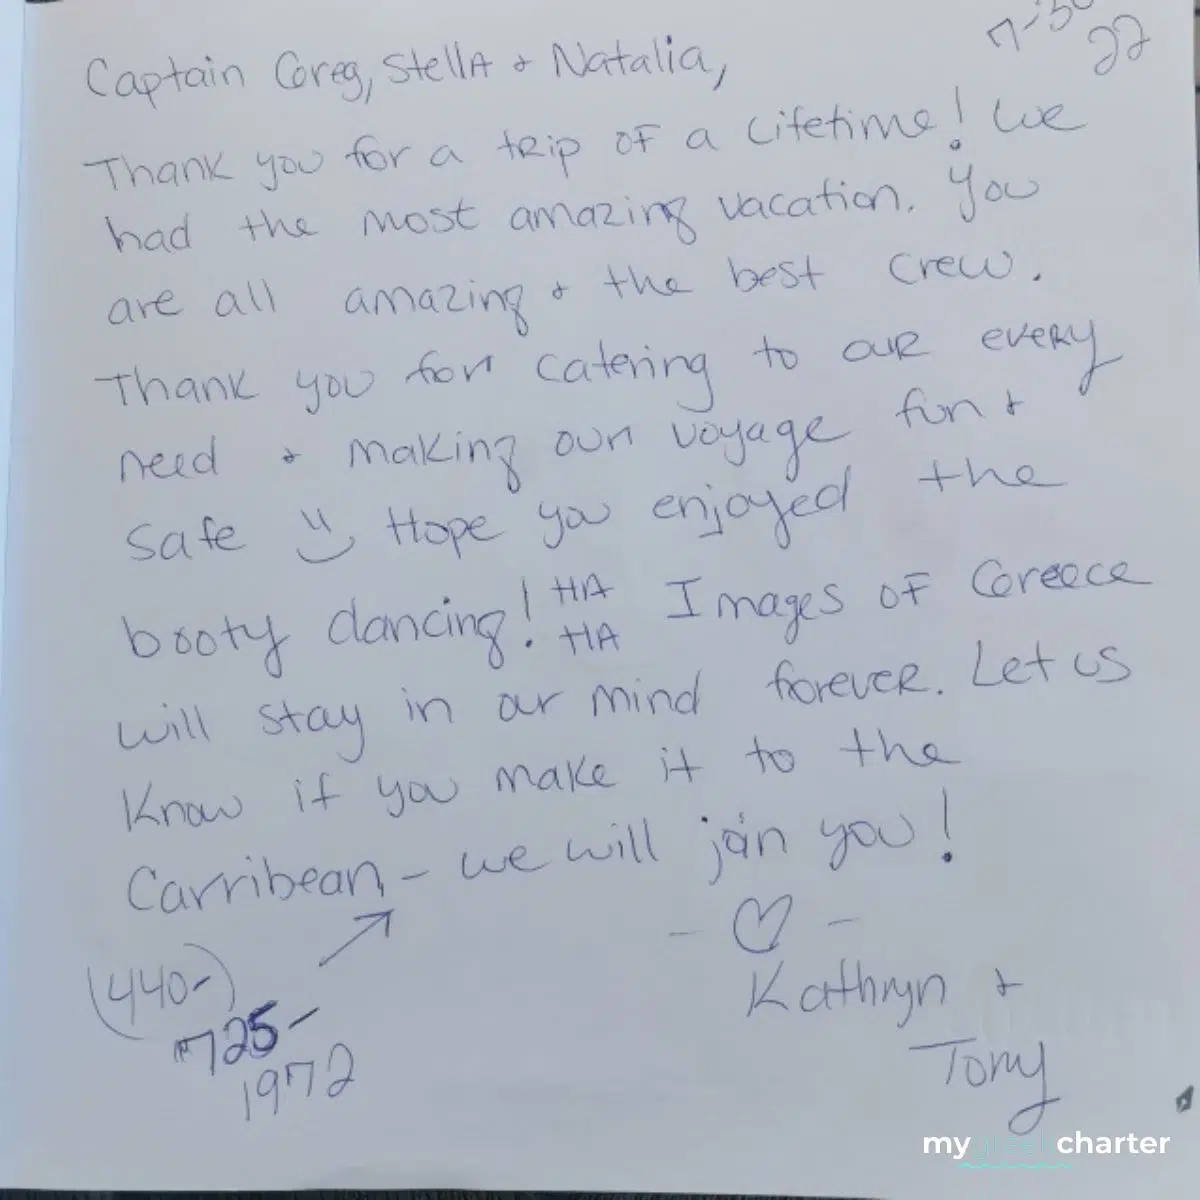 7-30
22
Captain Greg, Stella & Natalia,
Thank you for a trip of a lifetime! We
had the most amazing vacation. You
are all amazing & the best crew.
Thank you for catering to our every
need & making our voyage fun &
safe Hope you enjoyed the
booty dancing! HA HA Images of Greece
will stay in our mind forever. Let us
know if you make it to the
Carribean - we will join you!
- ♡ -
(440-)
725-
1972
Kathryn &
Tony
mygreekcharter